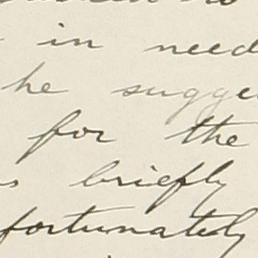 in need
he sugge
for the
s briefly
fortunately